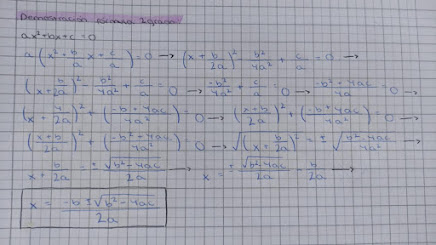 Demostración fórmula 2grado
ax² + bx + c = 0
a(x² + b/a x + c/a) = 0 → (x + b/2a)² - b²/4a² + c/a = 0 →
(x + b/2a)² - b²/4a² + c/a = 0 → -b²/4a² + c/a = 0 → -b² + 4ac/4a = 0 →
(x + /2a)² + (-b + 4ac/4a²) = 0 → (x + b/2a)² + (-b + 4ac/4a²) = 0 →
(x + b/2a)² + (-b² + 4ac/4a²) = 0 → √(x + b/2a)² = ± √b² - 4ac/4a² →
x + b/2a = ± √b² - 4ac/2a → x = ± √b² - 4ac/2a - b/2a →
x = -b ± √b² - 4ac/2a